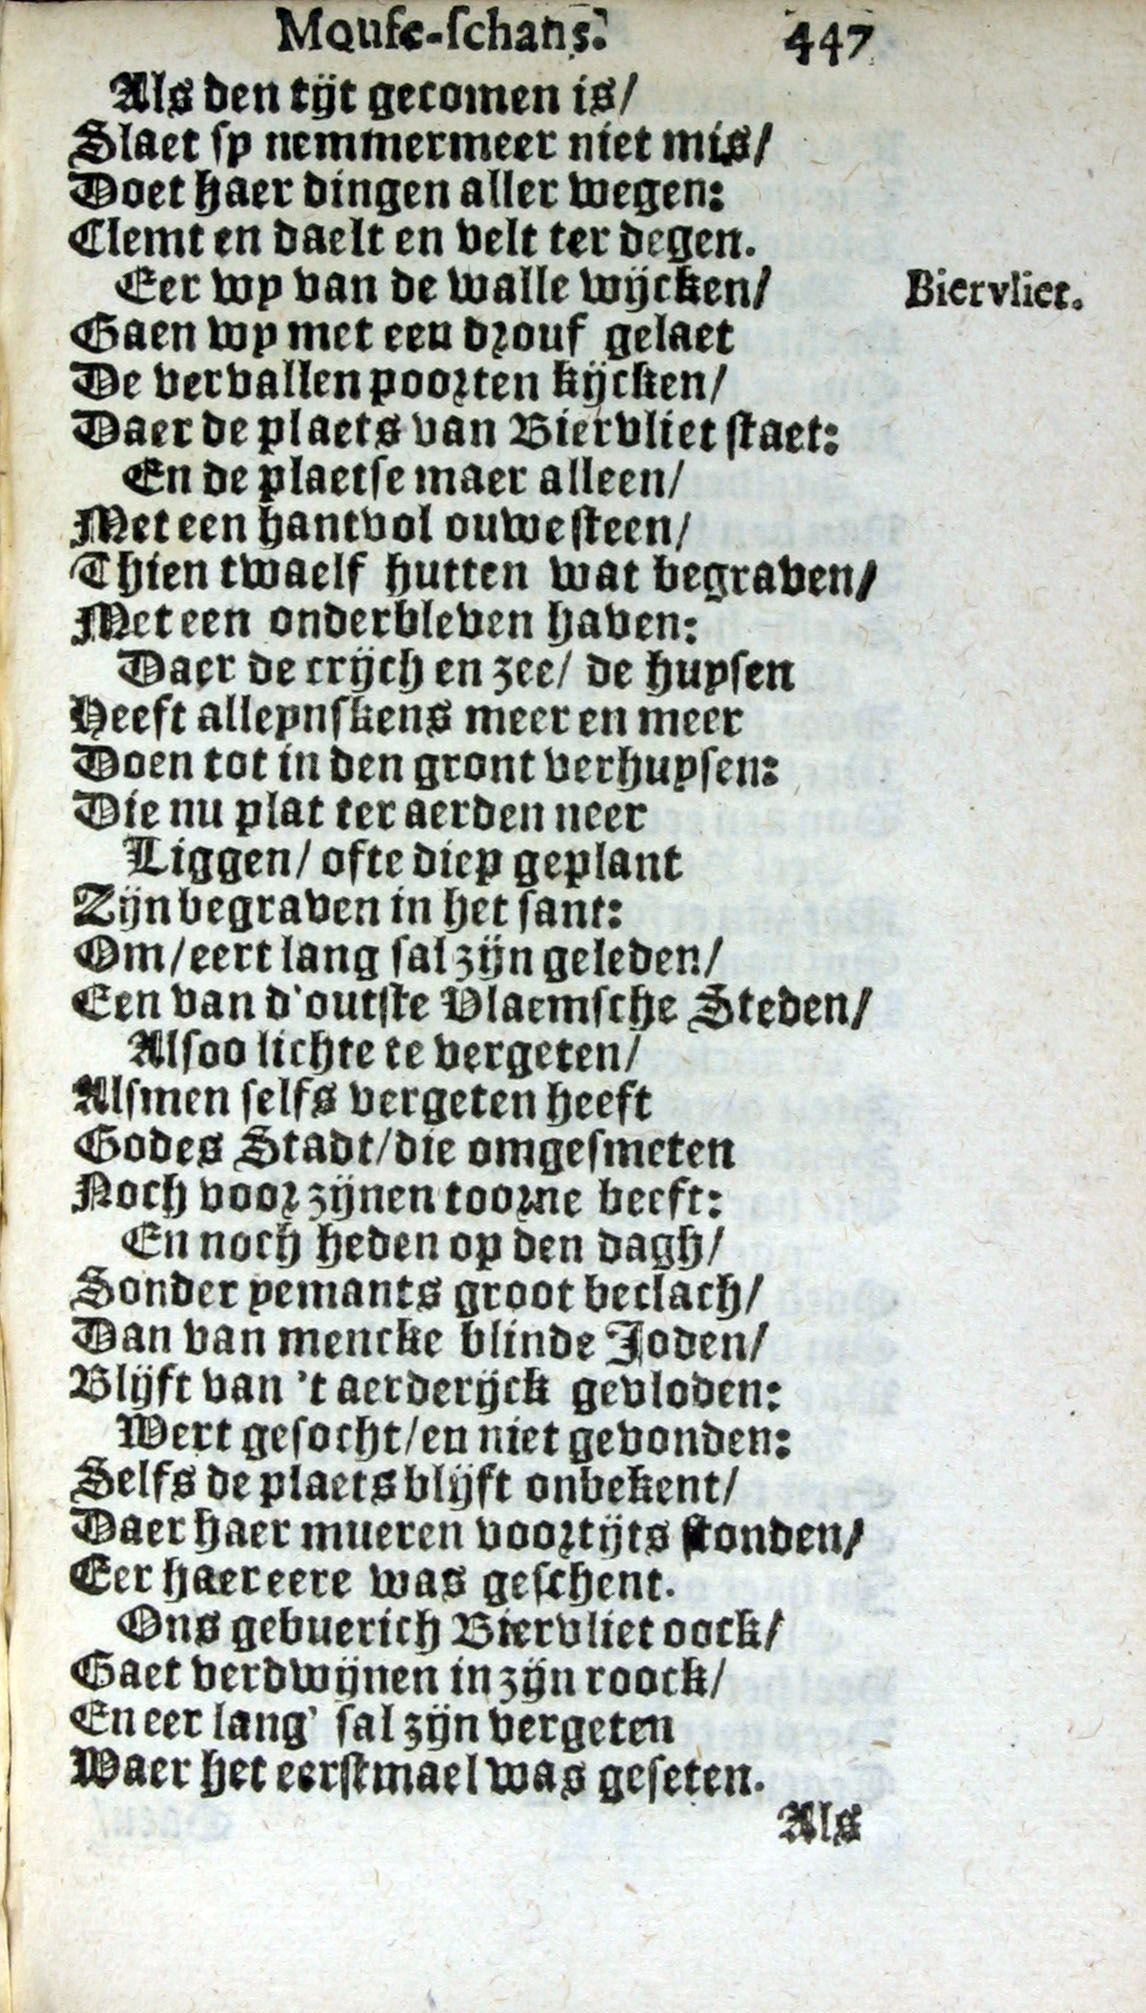 Moufe-ſchans. 447
Als den tijt gecomen is/
Slaet sy nemmermeer niet mis/
Doet haer dingen aller wegen:
Clemt en daelt en velt ter degen.
Eer wy van de walle wijcken/ Biervliet.
Gaen wy met een drouf gelaet
De vervallen poorten kijcken/
Daer de plaets van Biervliet staet:
En de plaetse maer alleen/
Met een hantvol ouwe steen/
Thien twaelf hutten wat begraven/
Met een onderbleven haven:
Daer de crijch en zee/ de huysen
Heeft alleynskens meer en meer
Doen tot in den gront verhuysen:
Die nu plat ter aerden neer
Liggen/ ofte diep geplant
Zijn begraven in het sant:
Om/ eert lang sal zijn geleden/
Een van d'outste Vlaemsche Steden/
Alsoo lichte te vergeten/
Alsmen selfs vergeten heeft
Godes Stadt/ die omgesmeten
Noch voor zijnen toorne beeft:
En noch heden op den dagh/
Sonder yemants groot beclach/
Dan van mencke blinde Joden/
Blijft van 't aerderijck gevloden:
Wert gesocht/ en niet gevonden:
Selfs de plaets blijft onbekent/
Daer haer mueren voortijts stonden/
Eer haer eere was geschent.
Ons gebuerich Biervliet oock/
Gaet verdwijnen in zijn roock/
En eer lang' sal zijn vergeten
Waer het eerstmael was geseten.
Als